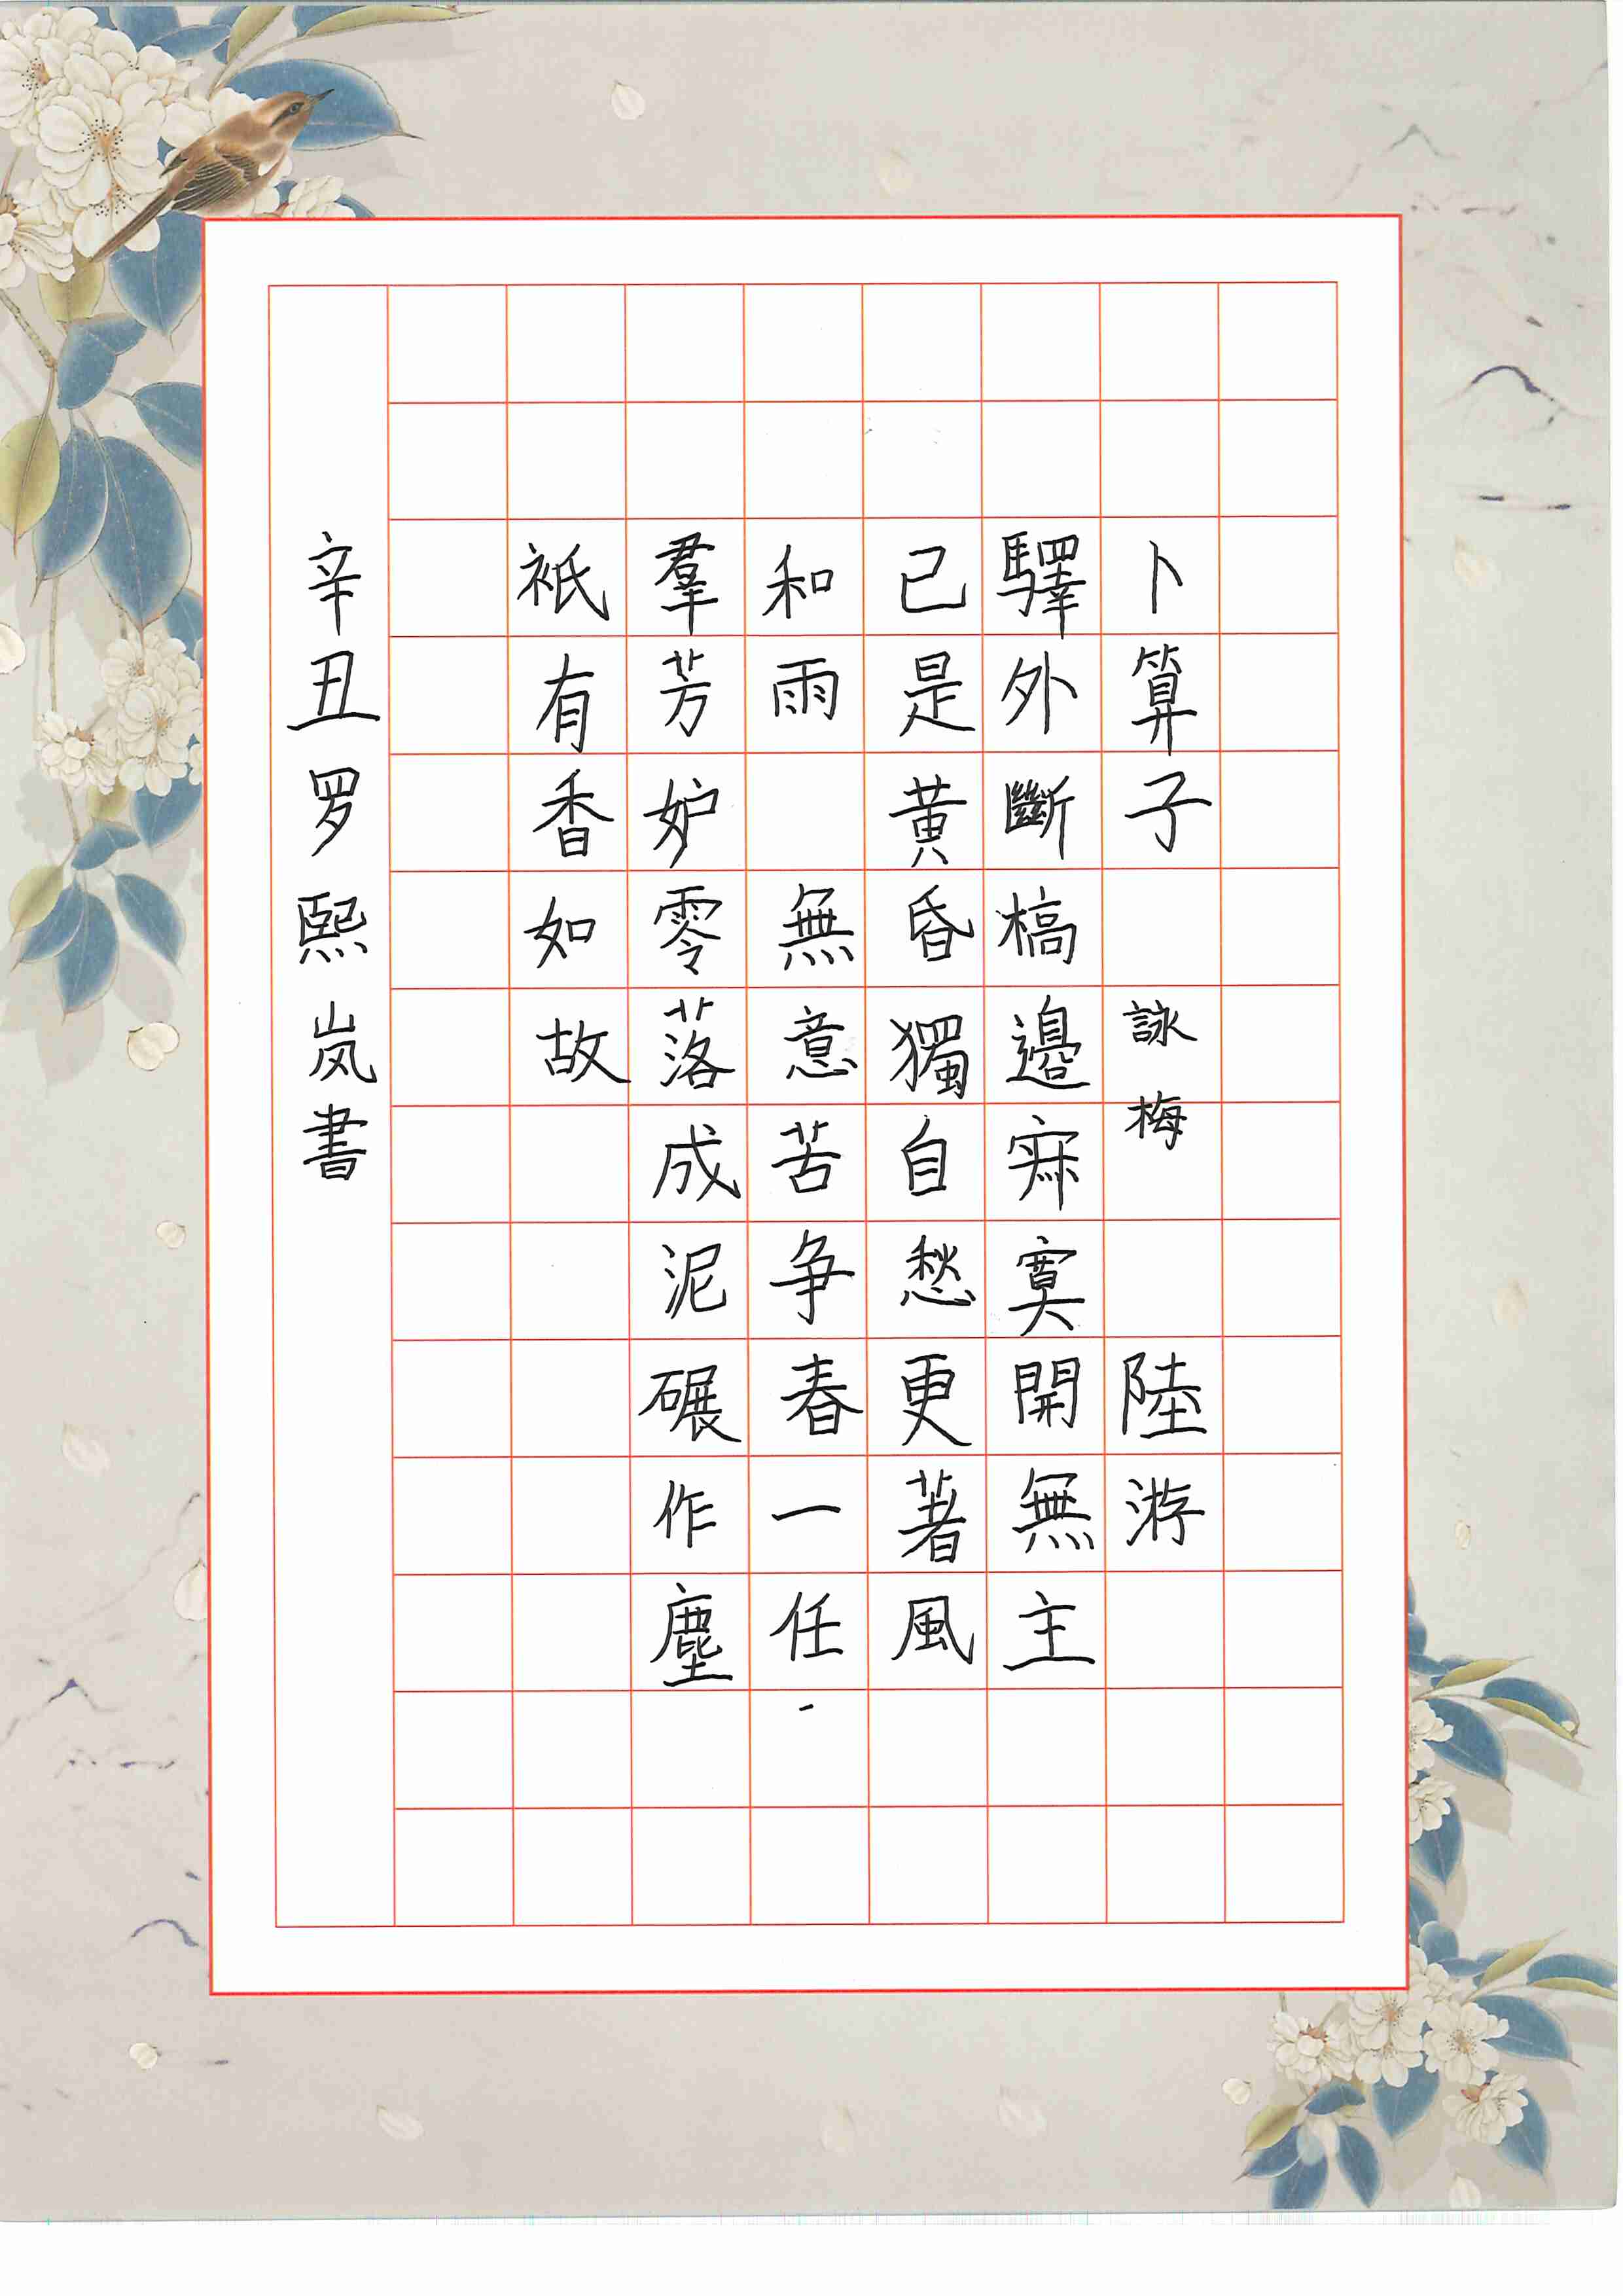 卜算子 詠梅 陸游
驛外斷槁邊寂寞開無主
已是黄昏獨自愁更著風
和雨 無意苦争春一任
羣芳妒零落成泥碾作塵
祇有香如故
辛丑罗熙岚書